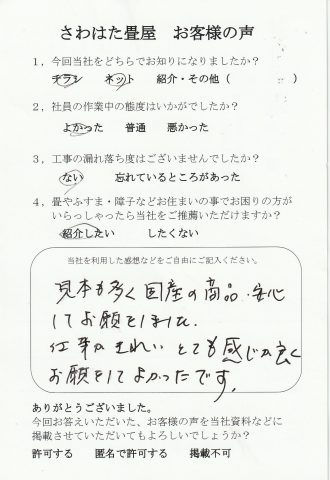 さわはた畳屋　お客様の声
1，今回当社をどちらでお知りになりましたか？
チラシ　ネット　紹介・その他（　　　）
2，社員の作業中の態度はいかがでしたか？
よかった　普通　悪かった
3，工事の漏れ落ち度はございませんでしたか？
ない　忘れているところがあった
4，畳やふすま・障子などお住まいの事でお困りの方が
いらっしゃったら当社をご推薦いただけますか？
紹介したい　したくない
当社を利用した感想などをご自由にご記入ください。
見本も多く国産の商品.安心
してお願をしました.
仕事がきれい とても感じが良く
お願をしてよかったです。
ありがとうございました。
今回お答えいただいた、お客様の声を当社資料などに
掲載させていただいてもよろしいでしょうか？
許可する　匿名で許可する　掲載不可